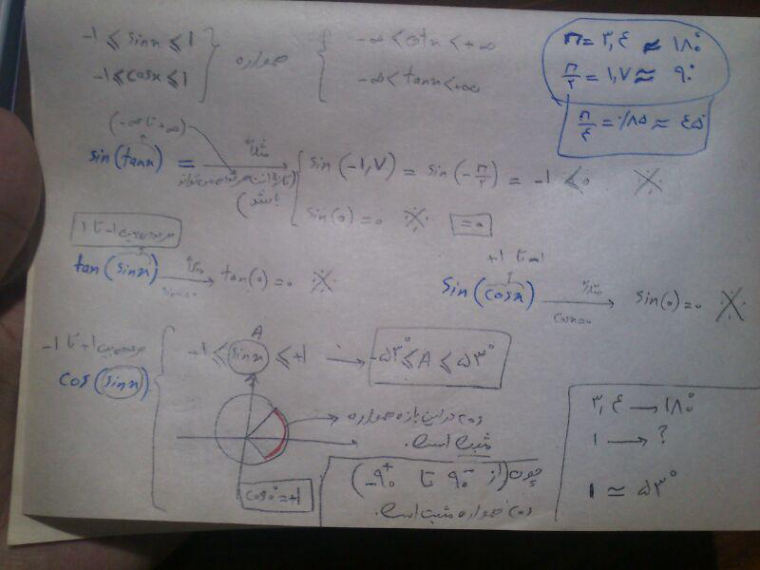 -۱ ⩽ sinx ⩽ ۱
-۱ ⩽ cosx ⩽ ۱
همواره
-∞ < cotx < +∞
-∞ < tanx < +∞
π = ۳,۴ ≈ ۱۸۰°
π/۲ = ۱,۷ ≈ ۹۰°
π/۴ = ۰/۸۵ ≈ ۴۵
(-∞ تا +∞)
sin(tanx) = مثلا
باشد)
sin(-۱,۷) = sin(-π/۲) = -۱ ⩽ ۰ ※
sin(۰) = ۰ ※ = ۰
-۱ تا ۱
tan(sinx) مثلا → tan(۰) = ۰ ※
sinx=۰
+۱ تا -۱
sin(cosx) مثلا → sin(۰) = ۰ ※
cosx=۰
-۱ تا +۱
cos(sinx)
A
-۱ ⩽ sinx ⩽ +۱ → -۵۳° ⩽ A ⩽ ۵۳°
cos در این بازه همواره
مثبت است.
cos۰° = +۱
چون (از -۹۰ تا +۹۰)
cos همواره مثبت است.
۳,۴ → ۱۸۰°
۱ → ?
۱ ≃ ۵۳°